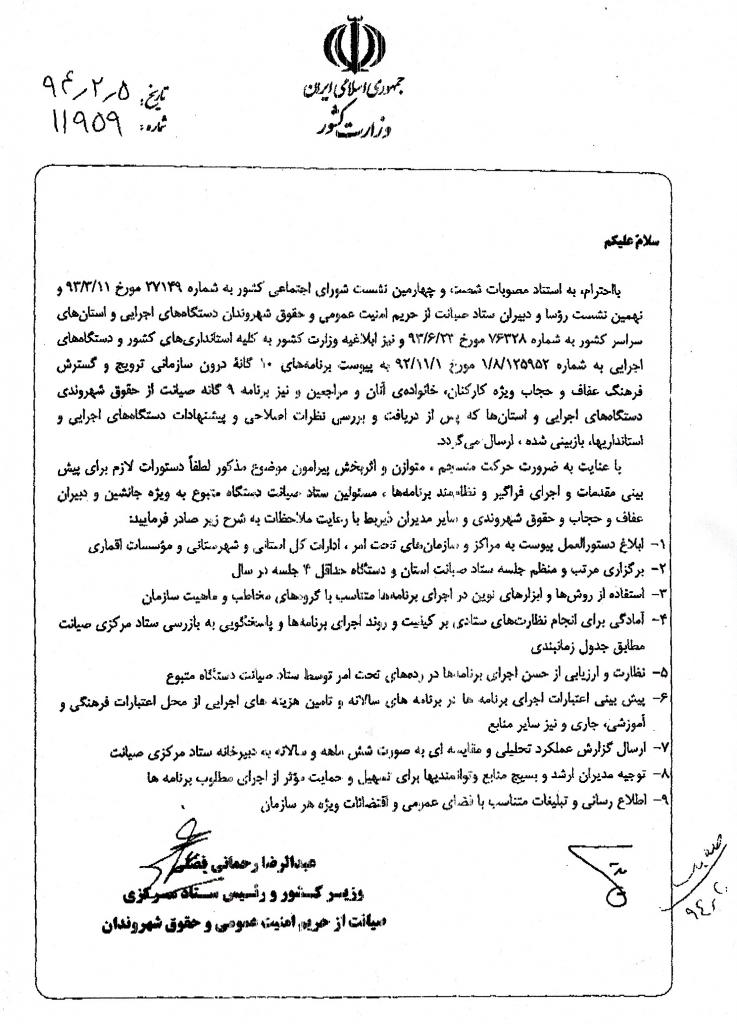 جمهوری اسلامی ایران
وزارت کشور
تاریخ: ۹۴٫۲٫۵
شماره: ۱۱۹۵۹
سلامٌ علیکم
بااحترام، به استناد مصوبات شصت و چهارمین نشست شورای اجتماعی کشور به شماره ۲۷۱۴۹ مورخ ۹۳/۳/۱۱ و
نهمین نشست رؤسا و دبیران ستاد صیانت از حریم امنیت عمومی و حقوق شهروندان دستگاه‌های اجرایی و استان‌های
سراسر کشور به شماره ۷۶۳۲۸ مورخ ۹۳/۶/۲۳ و نیز ابلاغیه وزارت کشور به کلیه استانداری‌های کشور و دستگاه‌های
اجرایی به شماره ۱/۸/۱۲۵۹۵۲ مورخ ۹۲/۱۱/۱ به پیوست برنامه‌های ۱۰ گانهٔ درون سازمانی ترویج و گسترش
فرهنگ عفاف و حجاب ویژه کارکنان، خانواده‌ی آنان و مراجعین و نیز برنامه ۹ گانه صیانت از حقوق شهروندی
دستگاه‌های اجرایی و استان‌ها که پس از دریافت و بررسی نظرات اصلاحی و پیشنهادات دستگاه‌های اجرایی و
استانداریها، بازبینی شده ، ارسال می‌گردد.
با عنایت به ضرورت حرکت منسجم ، متوازن و اثربخش پیرامون موضوع مذکور لطفاً دستورات لازم برای پیش
بینی مقدمات و اجرای فراگیر و نظام‌مند برنامه‌ها ، مسئولین ستاد صیانت دستگاه متبوع به ویژه جانشین و دبیران
عفاف و حجاب و حقوق شهروندی و سایر مدیران ذیربط با رعایت ملاحظات به شرح زیر صادر فرمایید:
۱- ابلاغ دستورالعمل پیوست به مراکز و سازمان‌های تحت امر ، ادارات کل استانی و شهرستانی و مؤسسات اقماری
۲- برگزاری مرتب و منظم جلسه ستاد صیانت استان و دستگاه حداقل ۴ جلسه در سال
۳- استفاده از روش‌ها و ابزارهای نوین در اجرای برنامه‌ها متناسب با گروه‌های مخاطب و ماهیت سازمان
۴- آمادگی برای انجام نظارت‌های ستادی بر کیفیت و روند اجرای برنامه‌ها و پاسخگویی به بازرسی ستاد مرکزی صیانت
مطابق جدول زمانبندی
۵- نظارت و ارزیابی از حسن اجرای برنامه‌ها در رده‌های تحت امر توسط ستاد صیانت دستگاه متبوع
۶- پیش بینی اعتبارات اجرای برنامه ها در برنامه های سالانه و تامین هزینه های اجرایی از محل اعتبارات فرهنگی و
آموزشی، جاری و نیز سایر منابع
۷- ارسال گزارش عملکرد تحلیلی و مقایسه ای به صورت شش ماهه و سالانه به دبیرخانه ستاد مرکزی صیانت
۸- توجیه مدیران ارشد و بسیج منابع وتوانمندیها برای تسهیل و حمایت مؤثر از اجرای مطلوب برنامه ها
۹- اطلاع رسانی و تبلیغات متناسب با فضای عمومی و اقتضائات ویژه هر سازمان
عبدالرضا رحمانی فضلی
وزیر کشور و رئیس ستاد مرکزی
صیانت از حریم امنیت عمومی و حقوق شهروندان